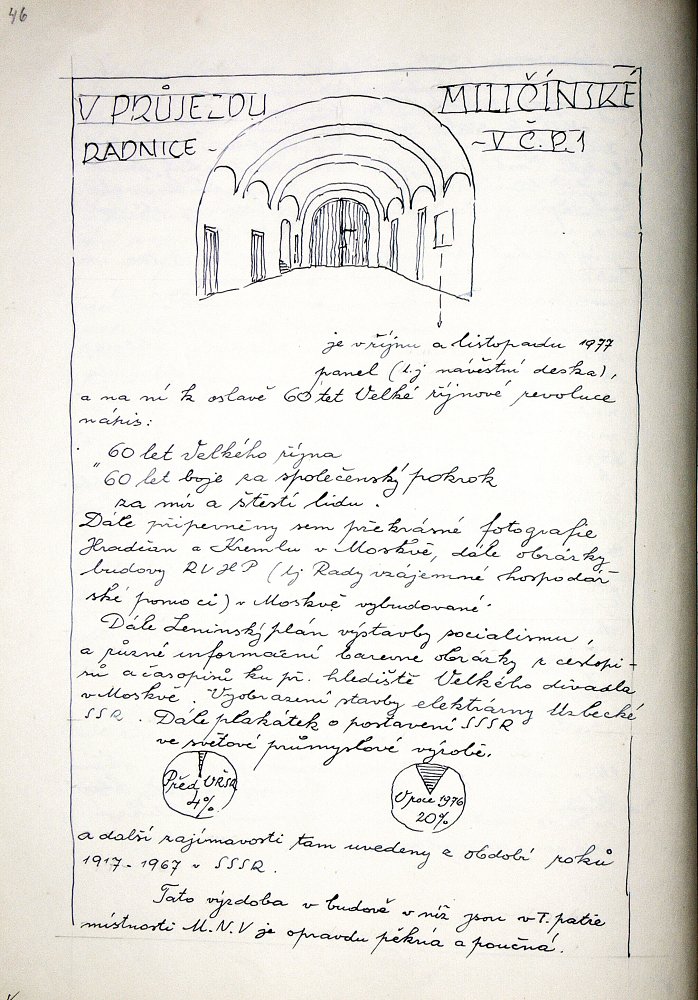 46
V PRŮJEZDU MILIČÍNSKÉ
RADNICE - - V Č.P.1
je v říjnu a listopadu 1977
panel (t.j návěstní deska),
a na ní k oslavě 60 let Velké říjnové revoluce
nápis:
60 let Velkého října
"60 let boje za společenský pokrok
za mír a štěstí lidu.
Dále připevněny sem překrásné fotografie
Hradčan a Kremlu v Moskvě, dále obrázky
budovy RVHP (tj Rady vzájemné hospodář-
ské pomoci) v Moskvě vybudované.
Dále Leninský plán výstavby socialismu,
a různé informační barevné obrázky z cestopi-
sů a časopisů ku př. hlediště Velkého divadla
v Moskvě. Vyobrazení stavby elektrárny Uzbecké
SSR. Dále plakátek o postavení SSSR
ve světové průmyslové výrobě.
Před VŘSR
4%
V roce 1976
20%
a další zajímavosti tam uvedeny z období roků
1917-1967 v SSSR.
Tato výzdoba v budově v níž jsou v I. patře
místnosti M.N.V je opravdu pěkná a poučná.